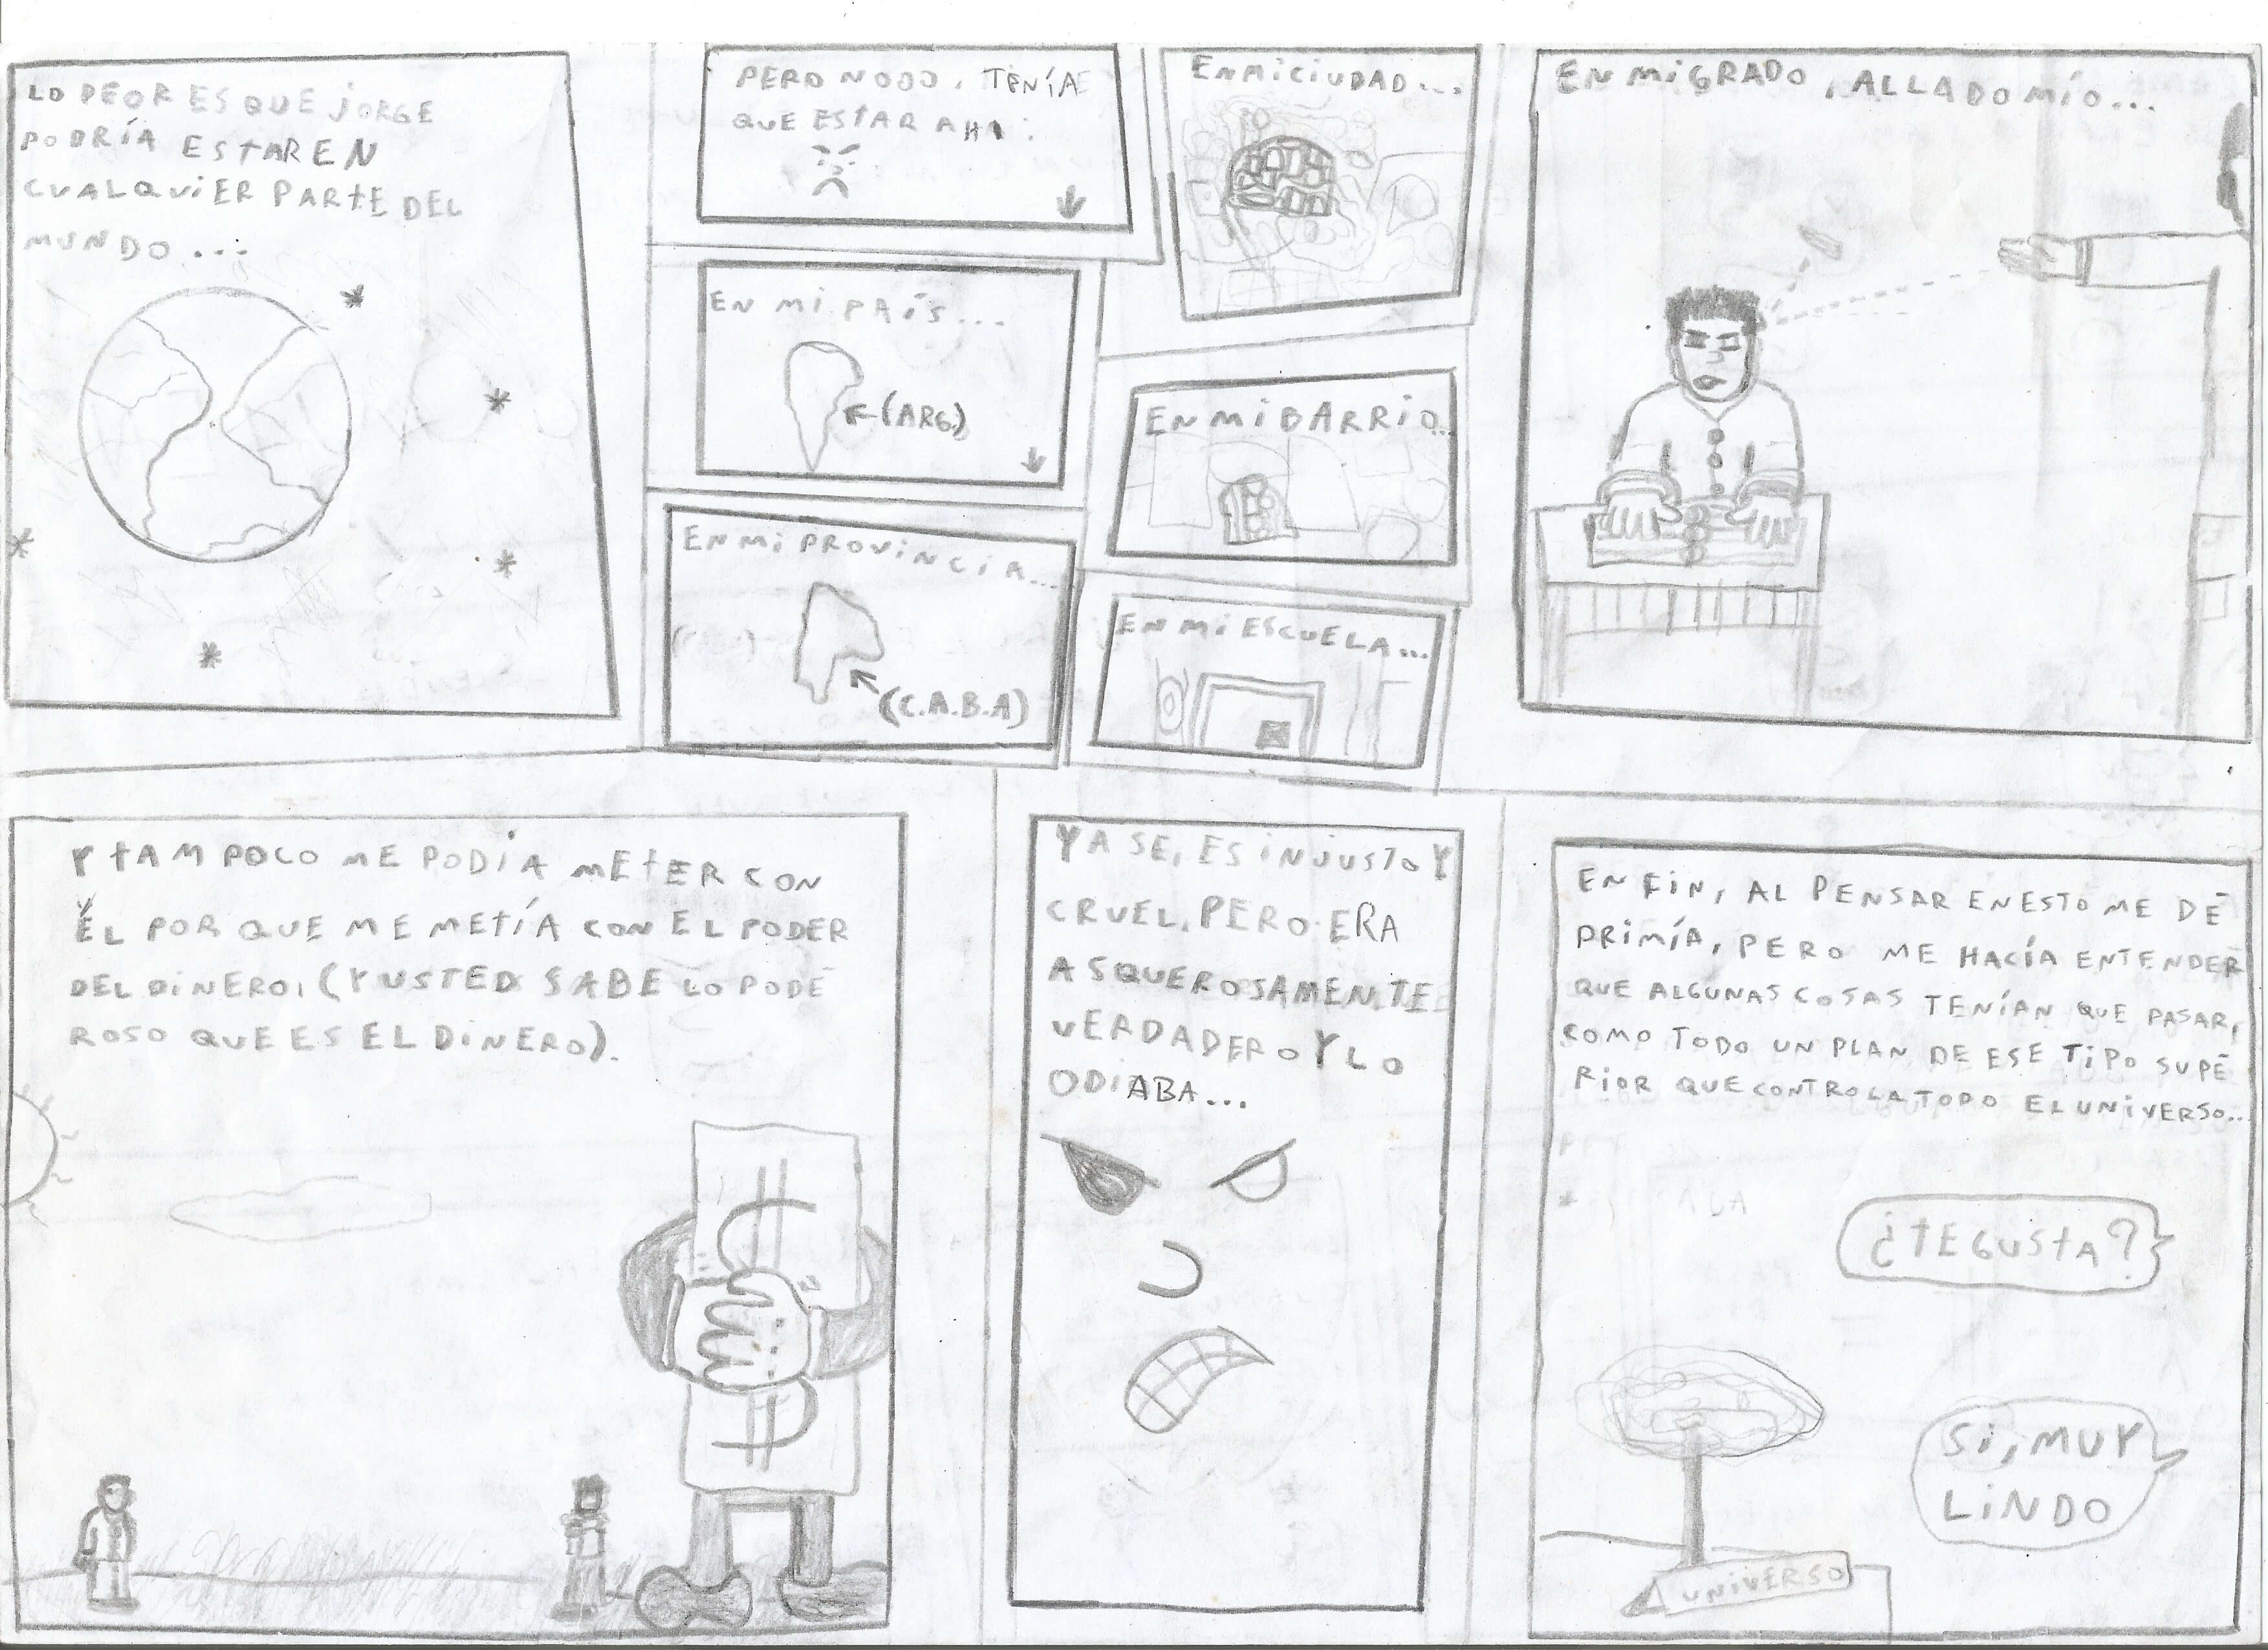 LO PEOR ES QUE JORGE
PODRÍA ESTAR EN
CUALQUIER PARTE DEL
MUNDO...
PERO NOOO, TENÍA
QUE ESTAR AHI:
EN MI PAÍS...
(ARG.)
EN MI PROVINCIA...
(C.A.B.A)
EN MI CIUDAD...
EN MI BARRIO...
EN MI ESCUELA...
EN MI GRADO, AL LADO MÍO...
Y TAMPOCO ME PODÍA METER CON
ÉL POR QUE ME METÍA CON EL PODER
DEL DINERO, (Y USTED SABE LO PODE
ROSO QUE ES EL DINERO).
YA SE, ES INJUSTO Y
CRUEL, PERO ERA
ASQUEROSAMENTE
VERDADERO Y LO
ODIABA...
EN FIN, AL PENSAR EN ESTO ME DE
PRIMÍA, PERO ME HACÍA ENTENDER
QUE ALGUNAS COSAS TENÍAN QUE PASAR,
COMO TODO UN PLAN DE ESE TIPO SUPE
RIOR QUE CONTROLA TODO EL UNIVERSO...
¿TE GUSTA?
SI, MUY
LINDO
UNIVERSO